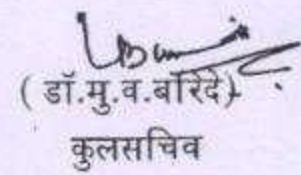 ( डॉ.मु.व.बोरिदे)
कुलसचिव